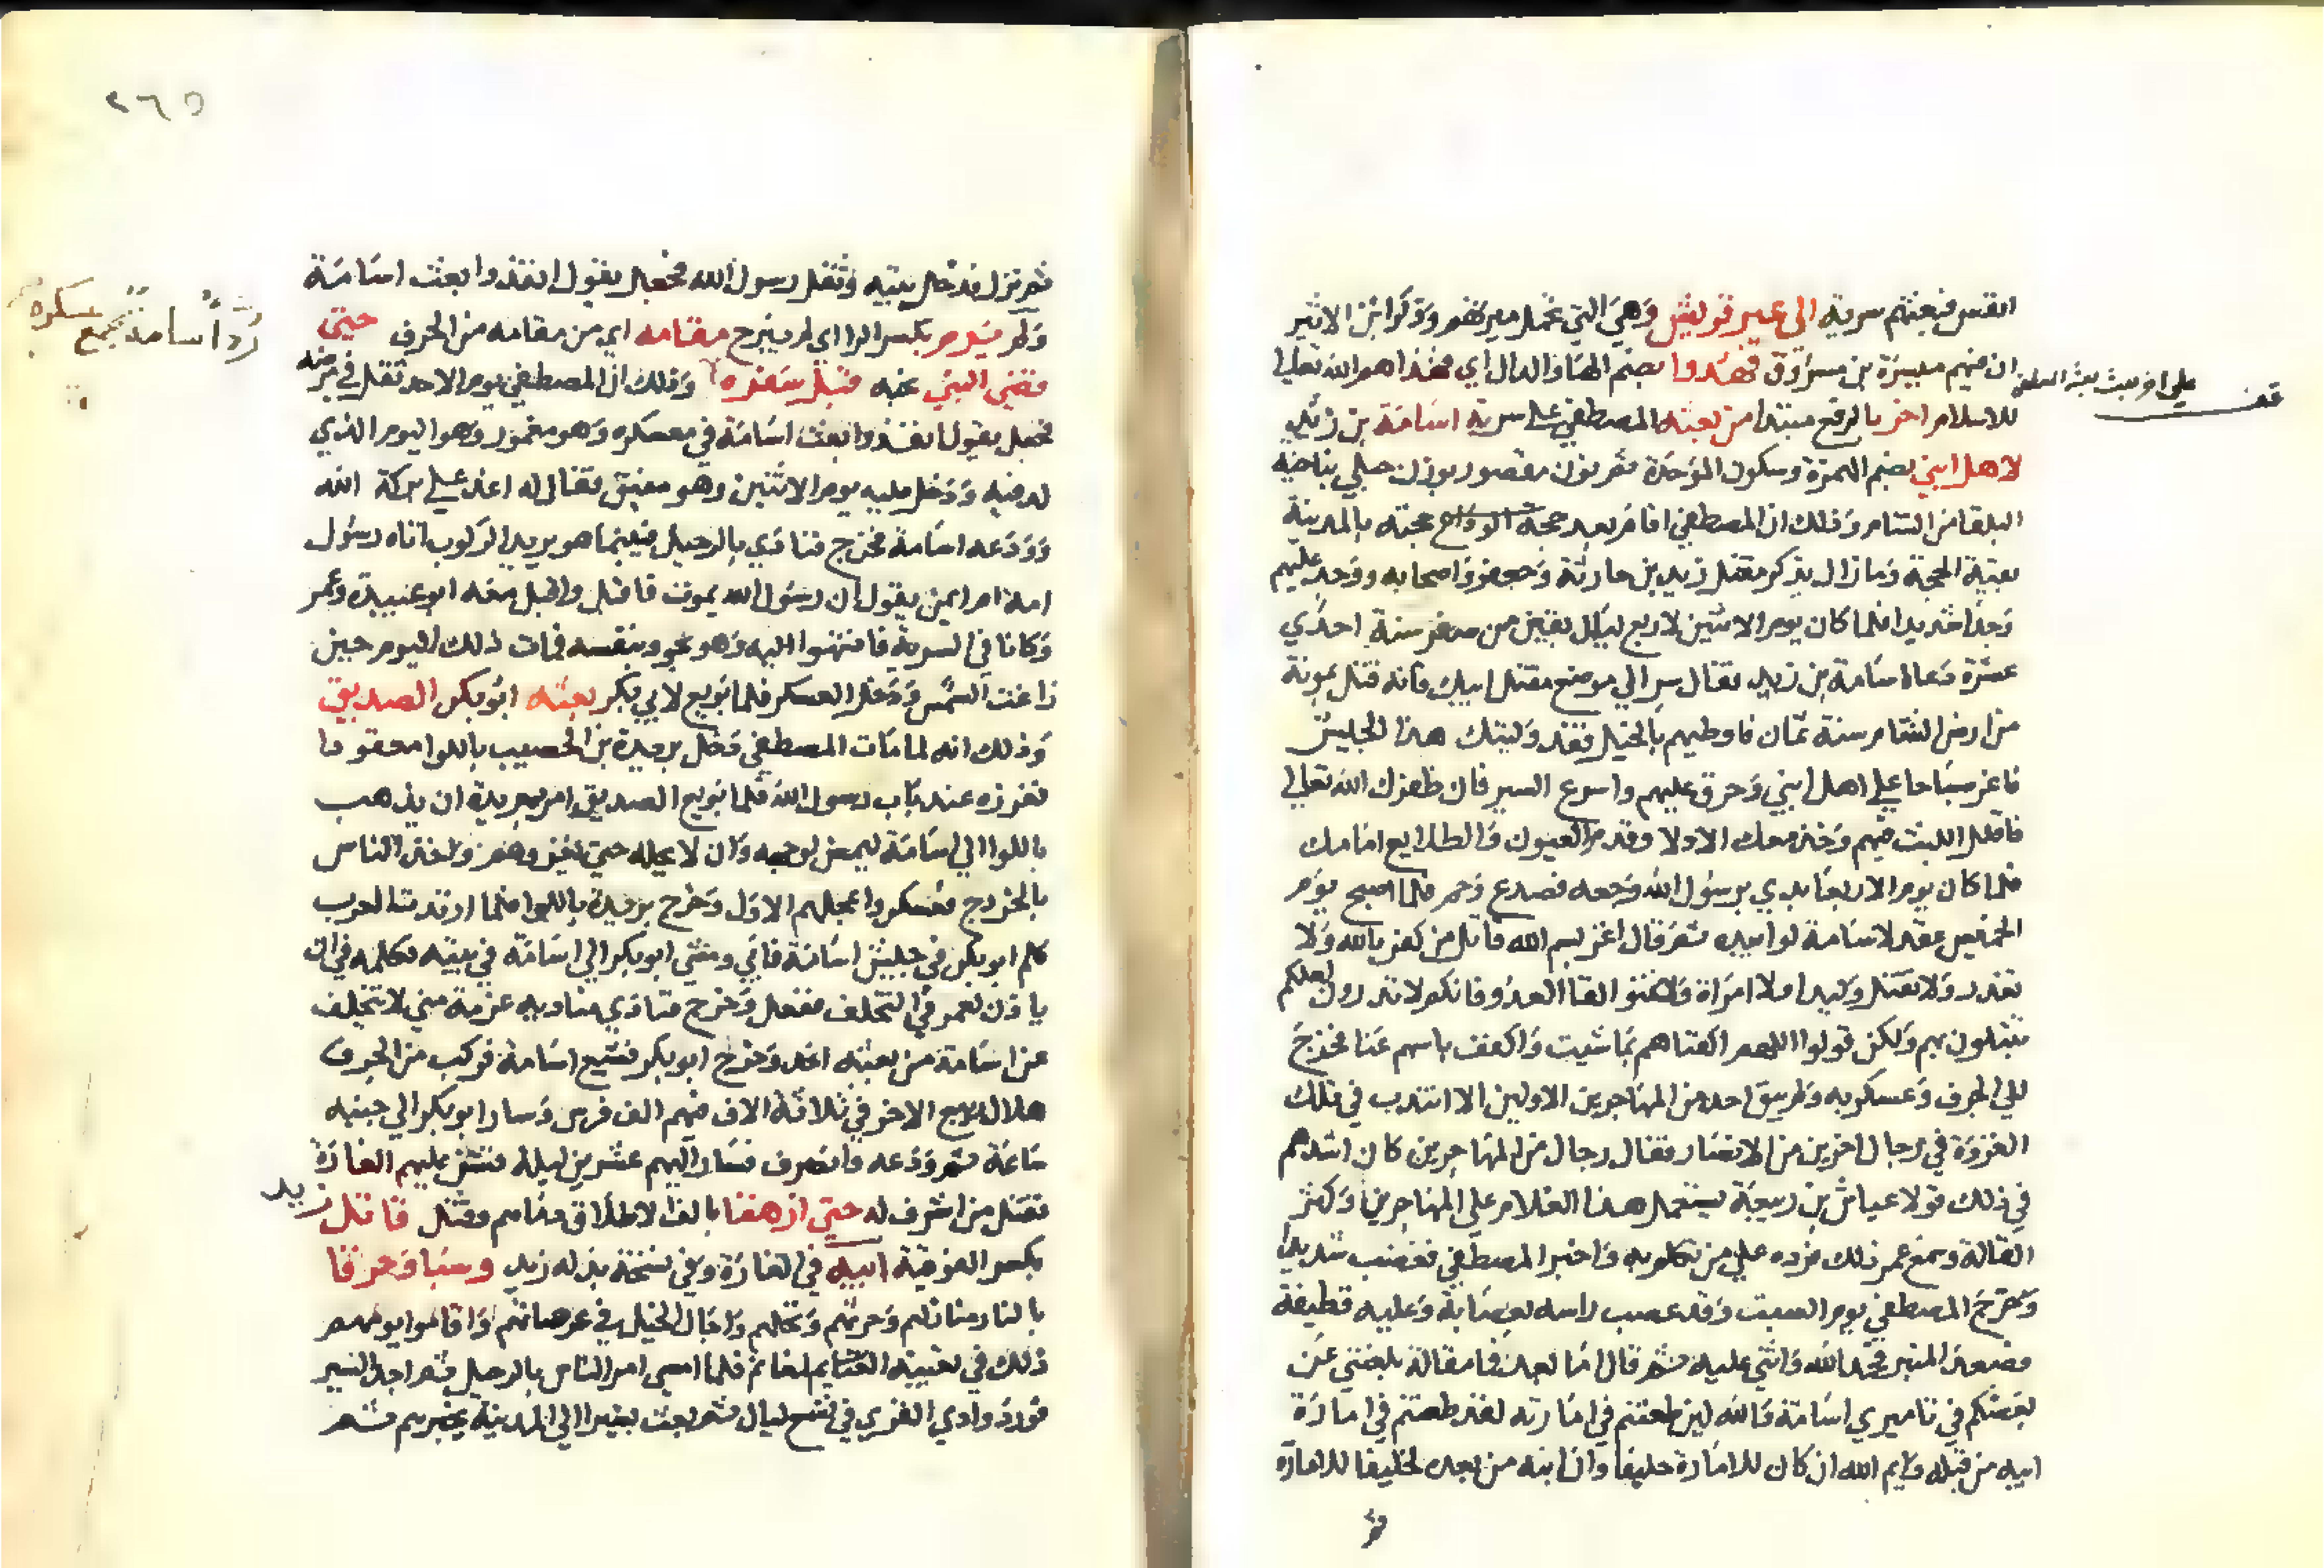 انفس فبعثهم سرية الى عير قريش وهي التي تحمل ميرتهم وذكر ابن الاثير
ان منهم ميسرة بن مسروق فهدوا بضم الها والدال اي فهذا هم الله تعالى
للاسلام اخر بالرفع مبتدا من بعثه المصطفى على سرية اسامة بن زيد
لاهل ابنى بضم الهمزة وسكون الموحدة ثم نون مقصور بوزن حبلى بناحية
البلقا من الشام وذلك ان المصطفى اقام بعد حجة الوداع حجته بالمدينة
بقية الحجة وما زال يذكر مقتل زيد بن حارثة وجعفر واصحابه ووجد عليهم
وجدا شديدا فلما كان يوم الاثنين لاربع ليال بقين من صفر سنة احدى
عشرة دعا اسامة بن زيد فقال سر الى موضع مقتل ابيك فانه قتل بموتة
من ارض الشام سنة ثمان فاوطيهم بالخيل فقد وليتك هذا الجيش
فاغز صباحا على اهل ابنى وحرق عليهم واسرع السير فان ظفرك الله تعالى
فاقلل اللبث فيهم وخذ معك الادلا وقدم العيون والطلايع امامك
فلما كان يوم الاربعا بدي برسول الله وجعه فصدع وحم فلما اصبح يوم
الخميس عقد لاسامة لوا بيده ثم قال اغز بسم الله قاتل من كفر بالله ولا
تغدر ولا تقتل وليدا ولا امراة ولا تمنوا لقا العدو فانكم لا تدرون لعلكم
تبتلون بهم ولكن قولوا اللهم اكفناهم بما شيت واكفف باسهم عنا فخرج
الى الجرف وعسكر به ولم يبق احد من المهاجرين الاولين الا انتدب في تلك
الغزوة في رجال اخرين من الانصار فقال رجال من المهاجرين كان اشدهم
في ذلك قولا عياش بن ربيعة يستعمل هذا الغلام على المهاجرين وكثر
القالة وسمع عمر ذلك فرده على من تكلم به واخبر المصطفى فغضب شديدا
وخرج المصطفى يوم السبت وقد عصب راسه بعصابة وعليه قطيفة
فصعد المنبر فحمد الله واثنى عليه ثم قال اما بعد فما مقالة بلغتني عن
بعضكم في تاميري اسامة فالله لين طعنتم في امارته لقد طعنتم في امارة
ابيه من قبله وايم الله ان كان للامارة خليقا وان ابنه من بعده لخليقا للامارة
قف على اخر بعث بعثه المصطفى
٢٦٥
ثم نزل فدخل بيته وثقل رسول الله فجعل يقول انفذوا بعث اسامة
ولم يرم بكسر الرا اي لم يبرح مقامه اي من مقامه من الجرف حتى
قضى النبي نحبه قبل سفره وذلك ان المصطفى يوم الاحد ثقل في مرضه
فجعل يقول انفذوا بعث اسامة في معسكره وهو مغمور وهو اليوم الذي
لد فيه ودخل عليه يوم الاثنين وهو مفيق فقال له اغد على بركة الله
وودعه اسامة فخرج فنادى بالرحيل فبينما هو يريد الركوب اتاه رسول
امه ام ايمن يقول ان رسول الله يموت فاقبل واقبل معه ابو عبيدة وعمر
وكانا في السرية فانتهوا اليه وهو يجود بنفسه فمات ذلك اليوم حين
زاغت الشمس ودخل العسكر فلما بويع لابي بكر بعثه ابو بكر الصديق
وذلك انه لما مات المصطفى دخل بريدة بن الحصيب باللوا معقودا
فغرزه عند باب رسول الله فلما بويع الصديق امر بريدة ان يذهب
باللوا الى اسامة ليمض لوجهه وان لا يحله حتى يغزوهم ولغت الناس
بالخروج فعسكروا بمحلهم الاول وخرج بريدة باللوا فلما ارتدت العرب
كلم ابو بكر في جيش اسامة فابي ومشى ابو بكر الى اسامة في بيته فكلمه في ان
ياذن لعمر في التخلف ففعل وخرج فنادي مناديه عزمة مني لا يتخلف
عن اسامة من بعثه احد وخرج ابو بكر فشيع اسامة فركب من الجرف
هلال ربيع الاخر في ثلاثة الاف فيهم الف فرس وسار ابو بكر الى جنبه
ساعة ثم ودعه وانصرف فسار اليهم عشرين ليلة فشن عليهم الغارة
فقتل من اشرف له حتى ازهقا بالف الاطلاق وقتل قاتل زيد
بكسر الفوقية ابيه في الغارة وفي نسخة بدله زيد وسبا وحرقا
بالنار منازلهم وحرثهم ونخلهم واجال الخيل في عرصاتهم واقاموا يومهم
ذلك في تعبية الغنايم فلما امسى امر الناس بالرحيل ثم اجد السير
فورد وادي القرى في تسع ليال ثم بعث بشيرا الى المدينة يخبرهم ثم
رد اسامة بجمع عسكره